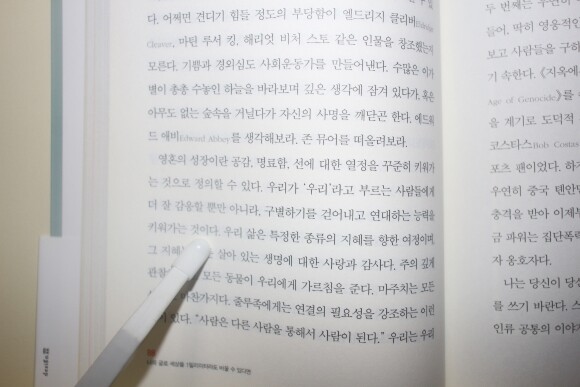 다. 어쩌면 견디기 힘들 정도의 부당함이 엘드리지 클리버Eldridge
Cleaver, 마틴 루서 킹, 해리엇 비처 스토 같은 인물을 창조했는지
모른다. 기쁨과 경외심도 사회운동가를 만들어낸다. 수많은 이가
별이 총총 수놓인 하늘을 바라보며 깊은 생각에 잠겨 있다가, 혹은
아무도 없는 숲속을 거닐다가 자신의 사명을 깨닫곤 한다. 에드워
드 애비Edward Abbey를 생각해보라. 존 뮤어를 떠올려보라.
영혼의 성장이란 공감, 명료함, 선에 대한 열정을 꾸준히 키워가
는 것으로 정의할 수 있다. 우리가 ‘우리’라고 부르는 사람들에게
더 잘 감응할 뿐만 아니라, 구별하기를 걷어내고 연대하는 능력을
키워가는 것이다. 우리 삶은 특정한 종류의 지혜를 향한 여정이며
그 지혜 살아 있는 생명에 대한 사랑과 감사다. 주의 깊게
관찰 모든 동물이 우리에게 가르침을 준다. 마주치는 모든
마찬가지다. 줄루족에게는 연결의 필요성을 강조하는 이런
있다. “사람은 다른 사람을 통해서 사람이 된다.” 우리는 우리
나의 글로 세상을 1밀리미터라도 바꿀 수 있다면
두 번째는 우연히
들어, 딱히 영웅적인
보고 사람들을 구하
기 속한다. 《지옥에
Age of Genocide》를
을 계기로 도덕적
코스타스Bob Costas
포츠 팬이었다. 하지
우연히 중국 톈안먼
충격을 받아 이제부
금 파워는 집단폭력
자 옹호자다.
나는 당신이 당신
를 쓰기 바란다. 스
인류 공통의 이야기